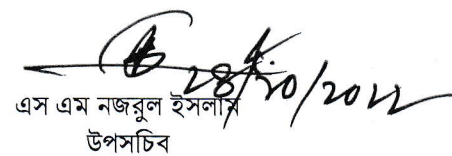 28/10/2022
এস এম নজরুল ইসলাম
উপসচিব